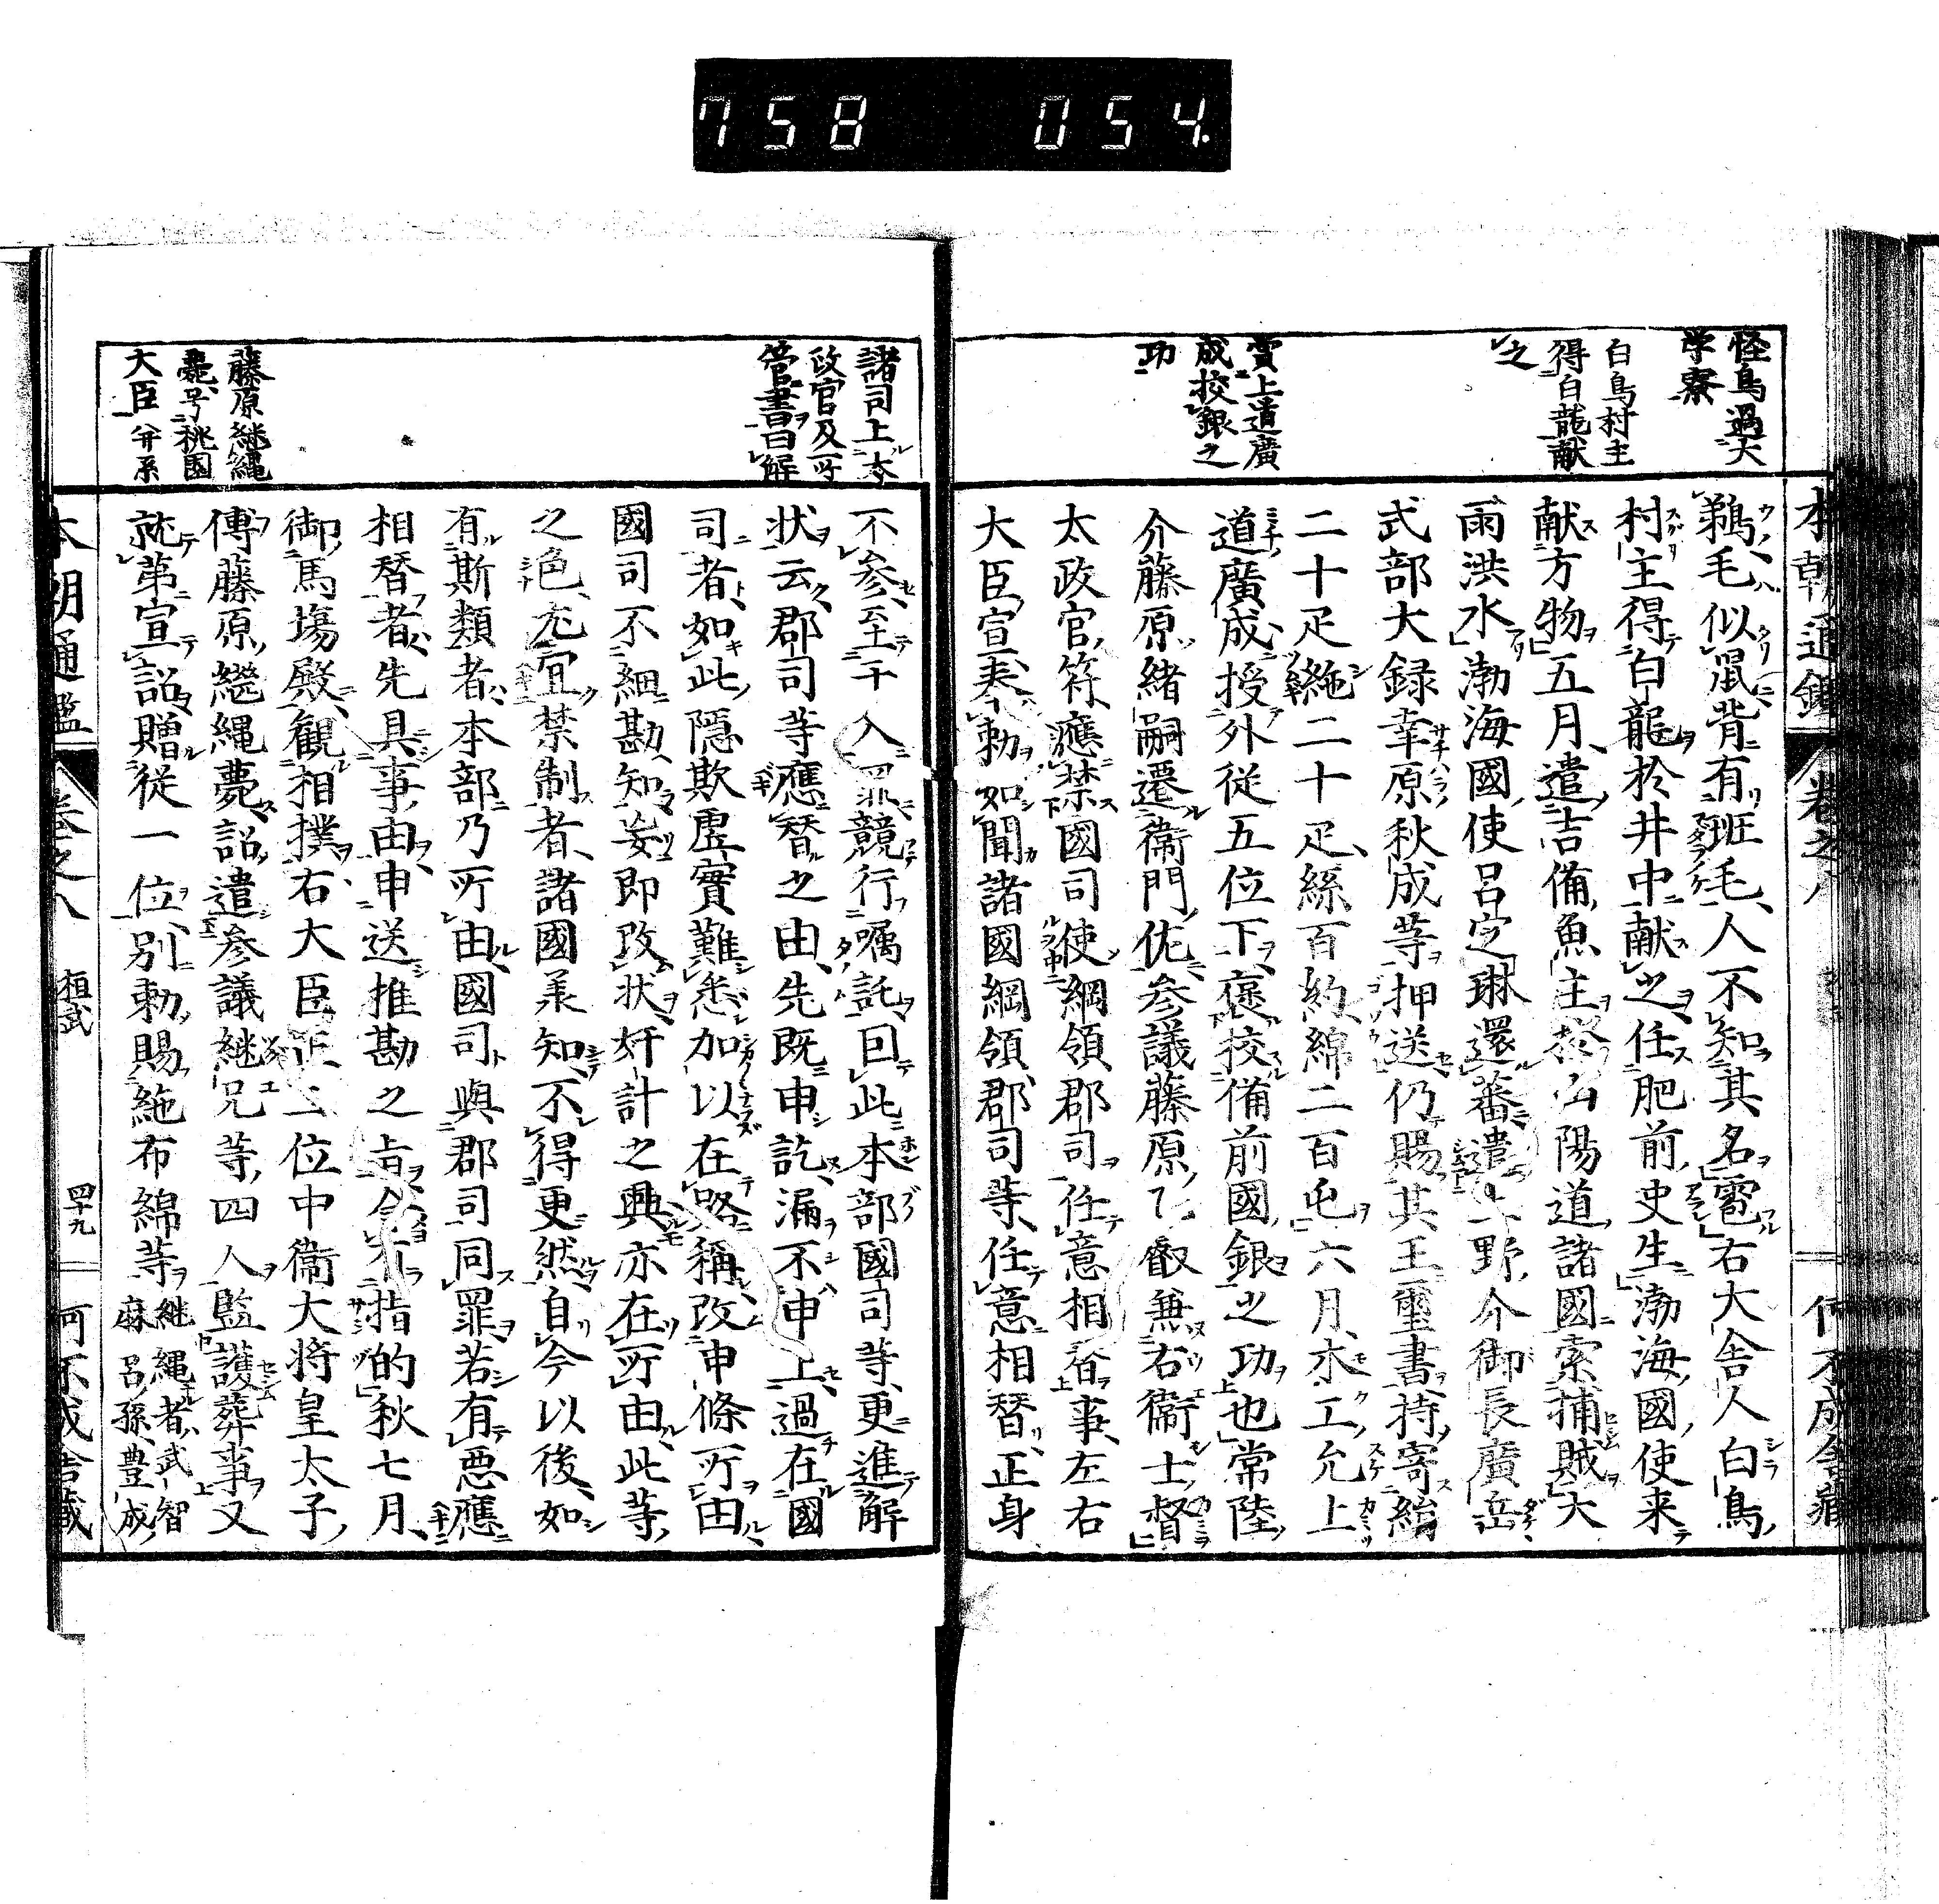 758 054
本朝通鑑 卷之八 何不成舎蔵
怪鳥過大
学寮
白鳥村主
得白龍献
之
賞上道廣
成挍銀之
功
鵜毛似鼠背有班毛人不知其名雹右大舎人白鳥
村主得白龍於井中献之任肥前吏生渤海國使来
献方物五月遣吉備魚主於山陽道諸國索捕賊大
雨洪水渤海國使呂定琳還蕃遣上野介御長廣岳
式部大録幸原秋成等押送仍賜其王璽書持寄絁
二十疋絁二十疋絲百絇綿二百屯六月木工允上
道廣成授外従五位下褒挍備前國銀之功也常陸
介藤原緒嗣遷衞門佐参議藤原乙叡兼右衞士督
太政官符應禁國司使綱領郡司任意相替事左右
大臣宣奉勅如聞諸國綱領郡司等任意相替正身
諸司上太
政官及所
管書曰解
藤原継縄
薨号桃園
大臣并系
不参至干入罪競行嘱託回此本部國司等更進解
状云郡司等應替之由先既申訖漏不申上過在國
司者如此隠欺虚實難悉加以在路稱改申條所由
國司不細勘知妄即改状奸計之興亦在所由此等
之色尤宜禁制者諸國羕知不得更然自今以後如
有斯類者本部乃所由國司與郡司同罪若有悪應
相替者先具事由申送推勘之後令知指的秋七月
御馬塲殿観相撲右大臣正二位中衞大将皇太子
傅藤原繼縄薨詔遣参議継兄等四人監護葬事又
就第宣詔贈従一位別勅賜絁布綿等継縄者武智
麻呂孫豊成
本朝通鑑 卷之八 桓武 四十九 何不成舎蔵